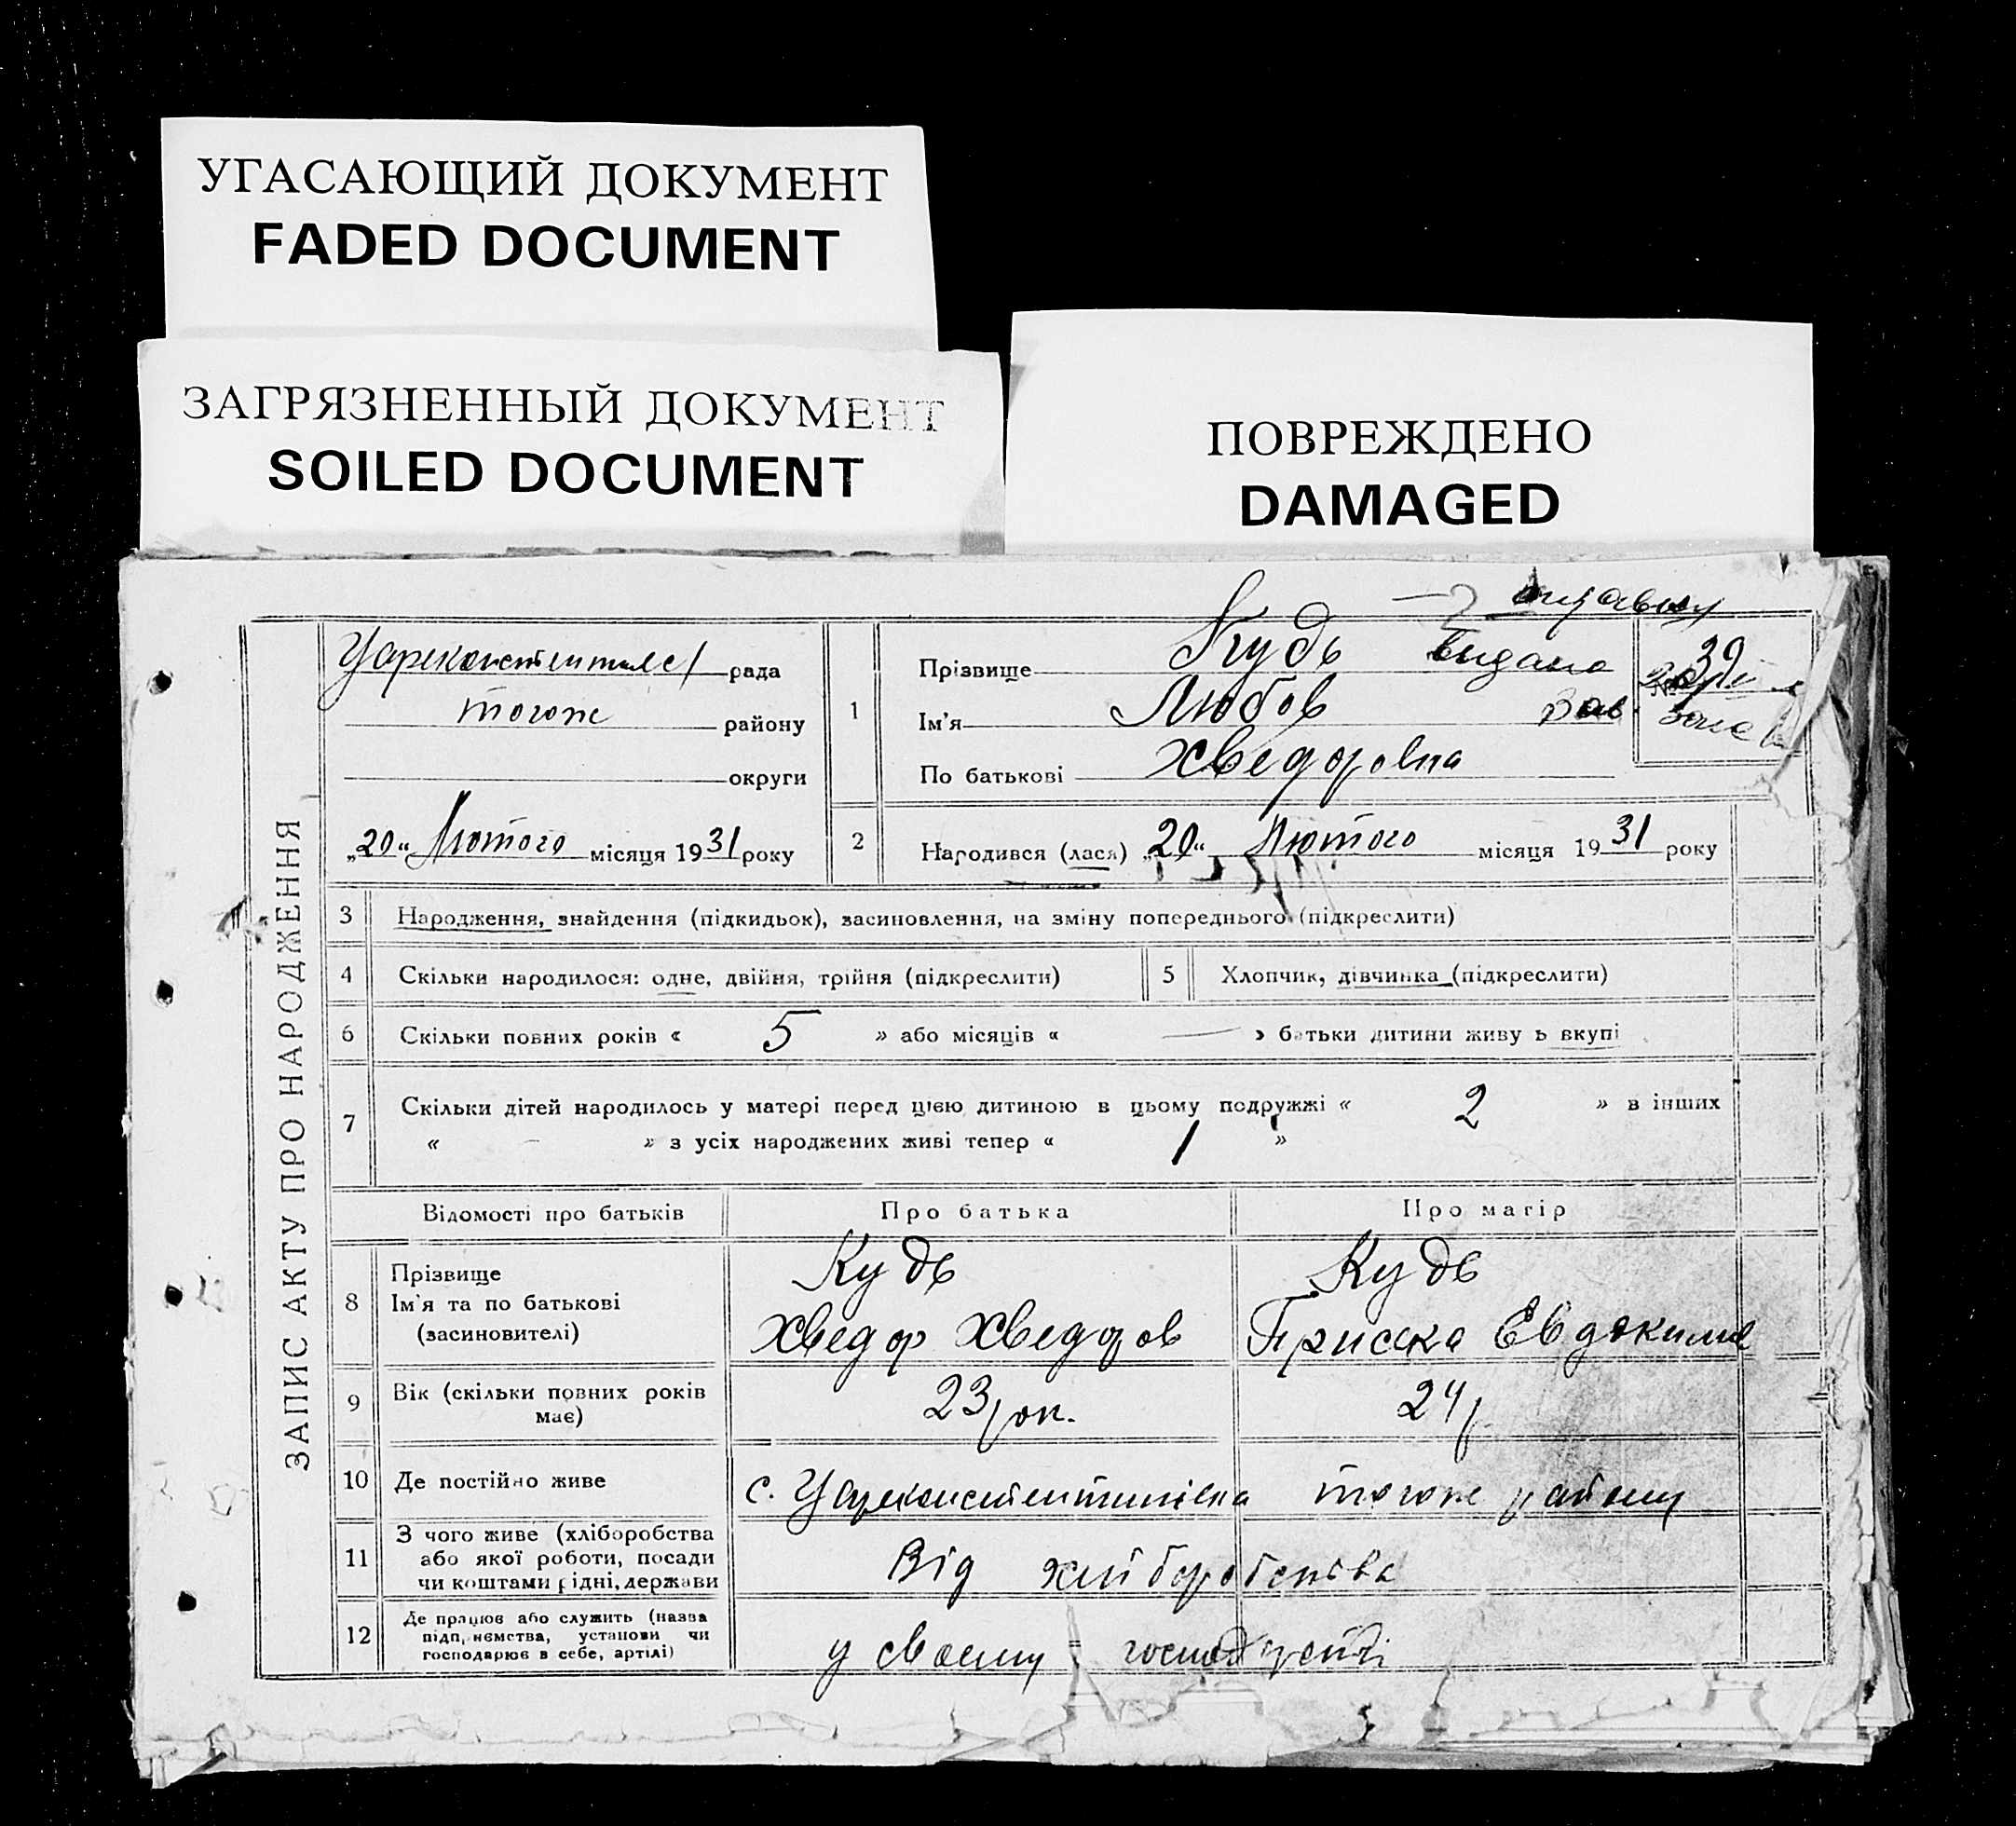 УГАСАЮЩИЙ ДОКУМЕНТ
FADED DOCUMENT
ЗАГРЯЗНЕННЫЙ ДОКУМЕНТ
SOILED DOCUMENT
ПОВРЕЖДЕНО
DAMAGED
ЗАПИС АКТУ ПРО НАРОДЖЕННЯ
рада
тогож району
округи
„20“ Лютого місяця 1931 року
1
Прізвище Кудь видано
Ім'я Любов
По батькові Хведоровна
№ 39
2 Народився (лася) „20“ Лютого місяця 1931 року
3 Народження, знайдення (підкидьок), засиновлення, на зміну попереднього (підкреслити)
4 Скільки народилося: одне, двійня, трійня (підкреслити) 5 Хлопчик, дівчинка (підкреслити)
6 Скільки повних років « 5 » або місяців « — » батьки дитини живу ь вкупі
7 Скільки дітей народилось у матері перед цією дитиною в цьому подружжі « 2 » в інших
« – » з усіх народжених живі тепер « 1 »
Відомості про батьків Про батька Про матір
8 Прізвище Кудь Кудь
Ім'я та по батькові
(засиновителі) Хведор Хведоров Приська Евдокимов
9 Вік (скільки повних років
має) 23 рок. 24 р.
10 Де постійно живе с. Цареконстентинівка тогож району
11 З чого живе (хліборобства
або якої роботи, посади
чи коштами рідні, держави Від хліборобства
12 Де працює або служить (назва
підприємства, установи чи
господарює в себе, артілі) у своєму господарстві